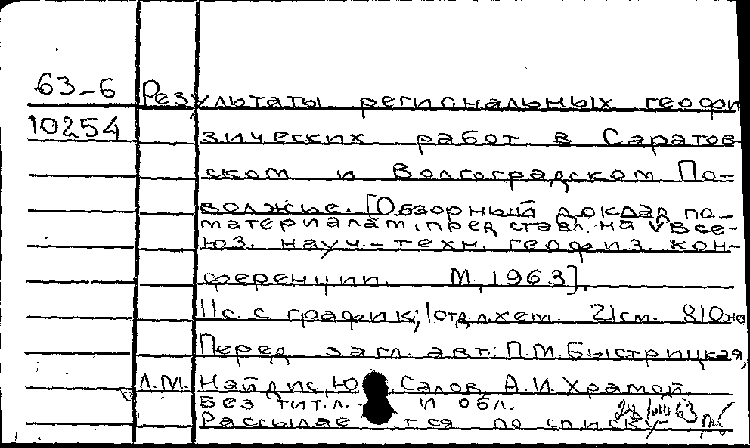 63-6 Результаты региональных геофи
10254 зических работ в Саратов
ском и Волгоградском По-
волжье. [Обзорный доклад по
материалам, представл. на V Все-
юз. науч.-техн. геофиз. кон-
ференции. М, 1963].
11с. с график; 1 отд.лхет. 21см. 810экз
Перед загл. авт: П.М.Быстрицкая,
Л.М. Найдис, Ю. Салов, А.И.Храмой.
Без тит.л. и обл.
Рассылается по списку